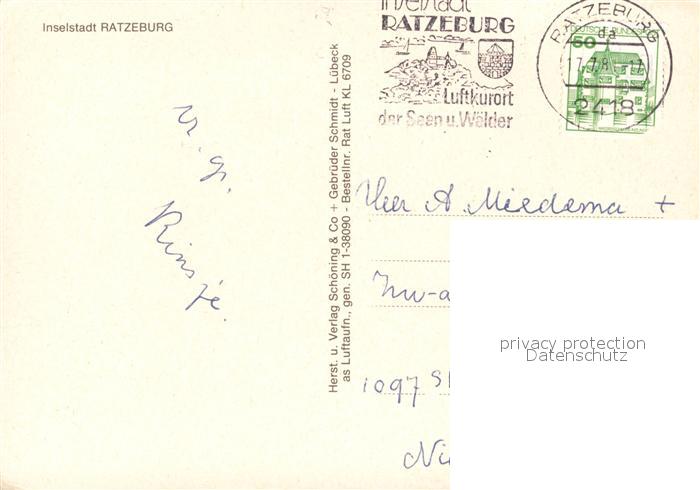 Inselstadt RATZEBURG
v. gr.
Rinsje.
Herst. u. Verlag Schöning & Co + Gebrüder Schmidt - Lübeck
as Luftaufn., gen. SH 1-38090 - Bestellnr. Rat Luft KL 6709
Inselstadt
RATZEBURG
Luftkurort
der Seen u. Wälder
RATZEBURG
da
2418
DEUTSCHE BUNDESPOST
50
A. Miedema +
1097
privacy protection
Datenschutz